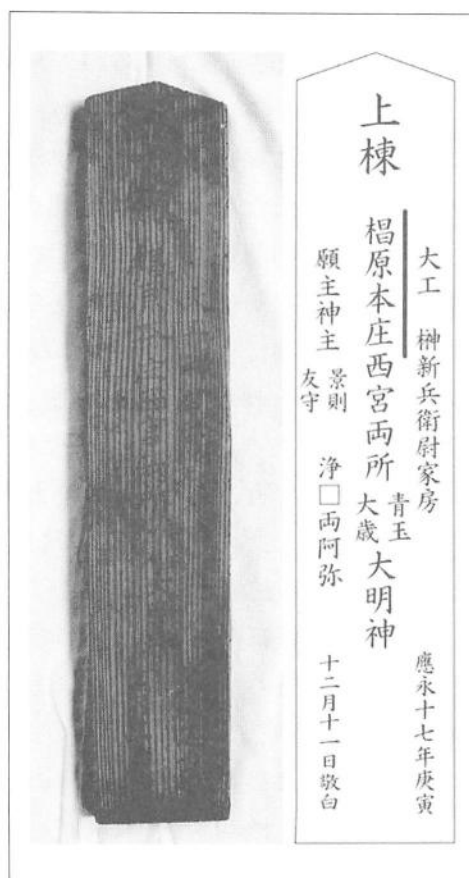 上棟
大工 榊新兵衛尉家房
應永十七年庚寅
椙原本庄西宮両所
青玉
大歳
大明神
願主神主
景則
友守
浄□両阿弥
十二月十一日敬白